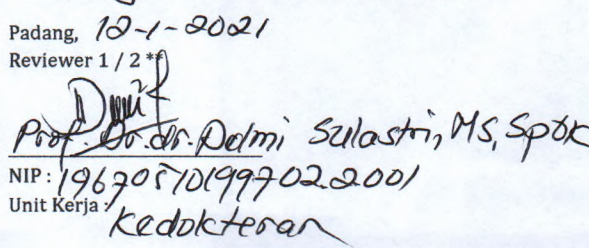 Padang, 12-1-2021
Reviewer 1 / 2 **)
Prof. Dr. dr. Delmi Sulastri, MS, SpGK
NIP : 196705101997022001
Unit Kerja : Kedokteran